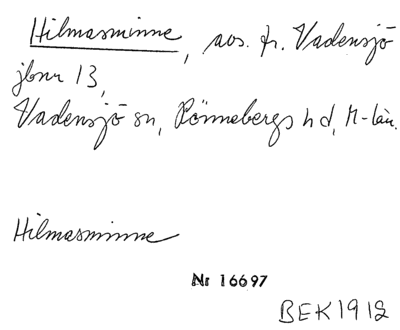 Hilmasminne, avs. fr. Vadensjö
jbnr 13,
Vadensjö sn, Rönnebergs hd, M-län.
Hilmasminne
Nr 16697
BEK1912